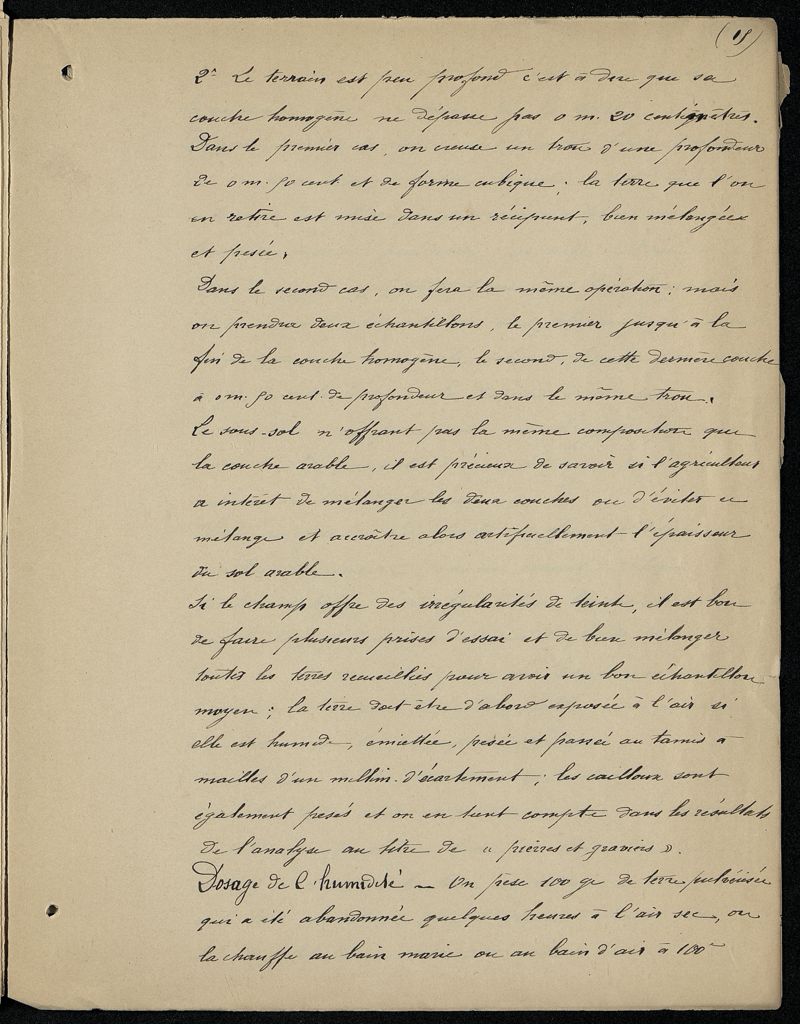 2° Le terrain est peu profond c'est à dire que sa
couche homogène ne dépasse pas 0 m. 20 centimètres.
Dans le premier cas, on creuse un trou d'une profondeur
de 0 m. 50 cent. et de forme cubique ; la terre que l'on
en retire est mise dans un récipient, bien mélangée
et pesée.
Dans le second cas, on fera la même opération ; mais
on prendra deux échantillons, le premier jusqu'à la
fin de la couche homogène, le second, de cette dernière couche
à 0 m. 50 cent. de profondeur et dans le même trou.
Le sous-sol n'offrant pas la même composition que
la couche arable, il est précieux de savoir si l'agriculteur
a intérêt de mélanger les deux couches ou d'éviter ce
mélange et accroître alors artificiellement l'épaisseur
du sol arable.
Si le champ offre des irrégularités de teinte, il est bon
de faire plusieurs prises d'essai et de bien mélanger
toutes les terres recueillies pour avoir un bon échantillon
moyen ; la terre doit être d'abord exposée à l'air si
elle est humide, émiettée, pesée et passée au tamis à
mailles d'un millim. d'écartement ; les cailloux sont
également pesés et on en tient compte dans les résultats
de l'analyse au titre de « pierres et graviers ».
Dosage de l'humidité — On pèse 100 gr de terre pulvérisée
qui a été abandonnée quelques heures à l'air sec, on
la chauffe au bain marie ou au bain d'air à 100°